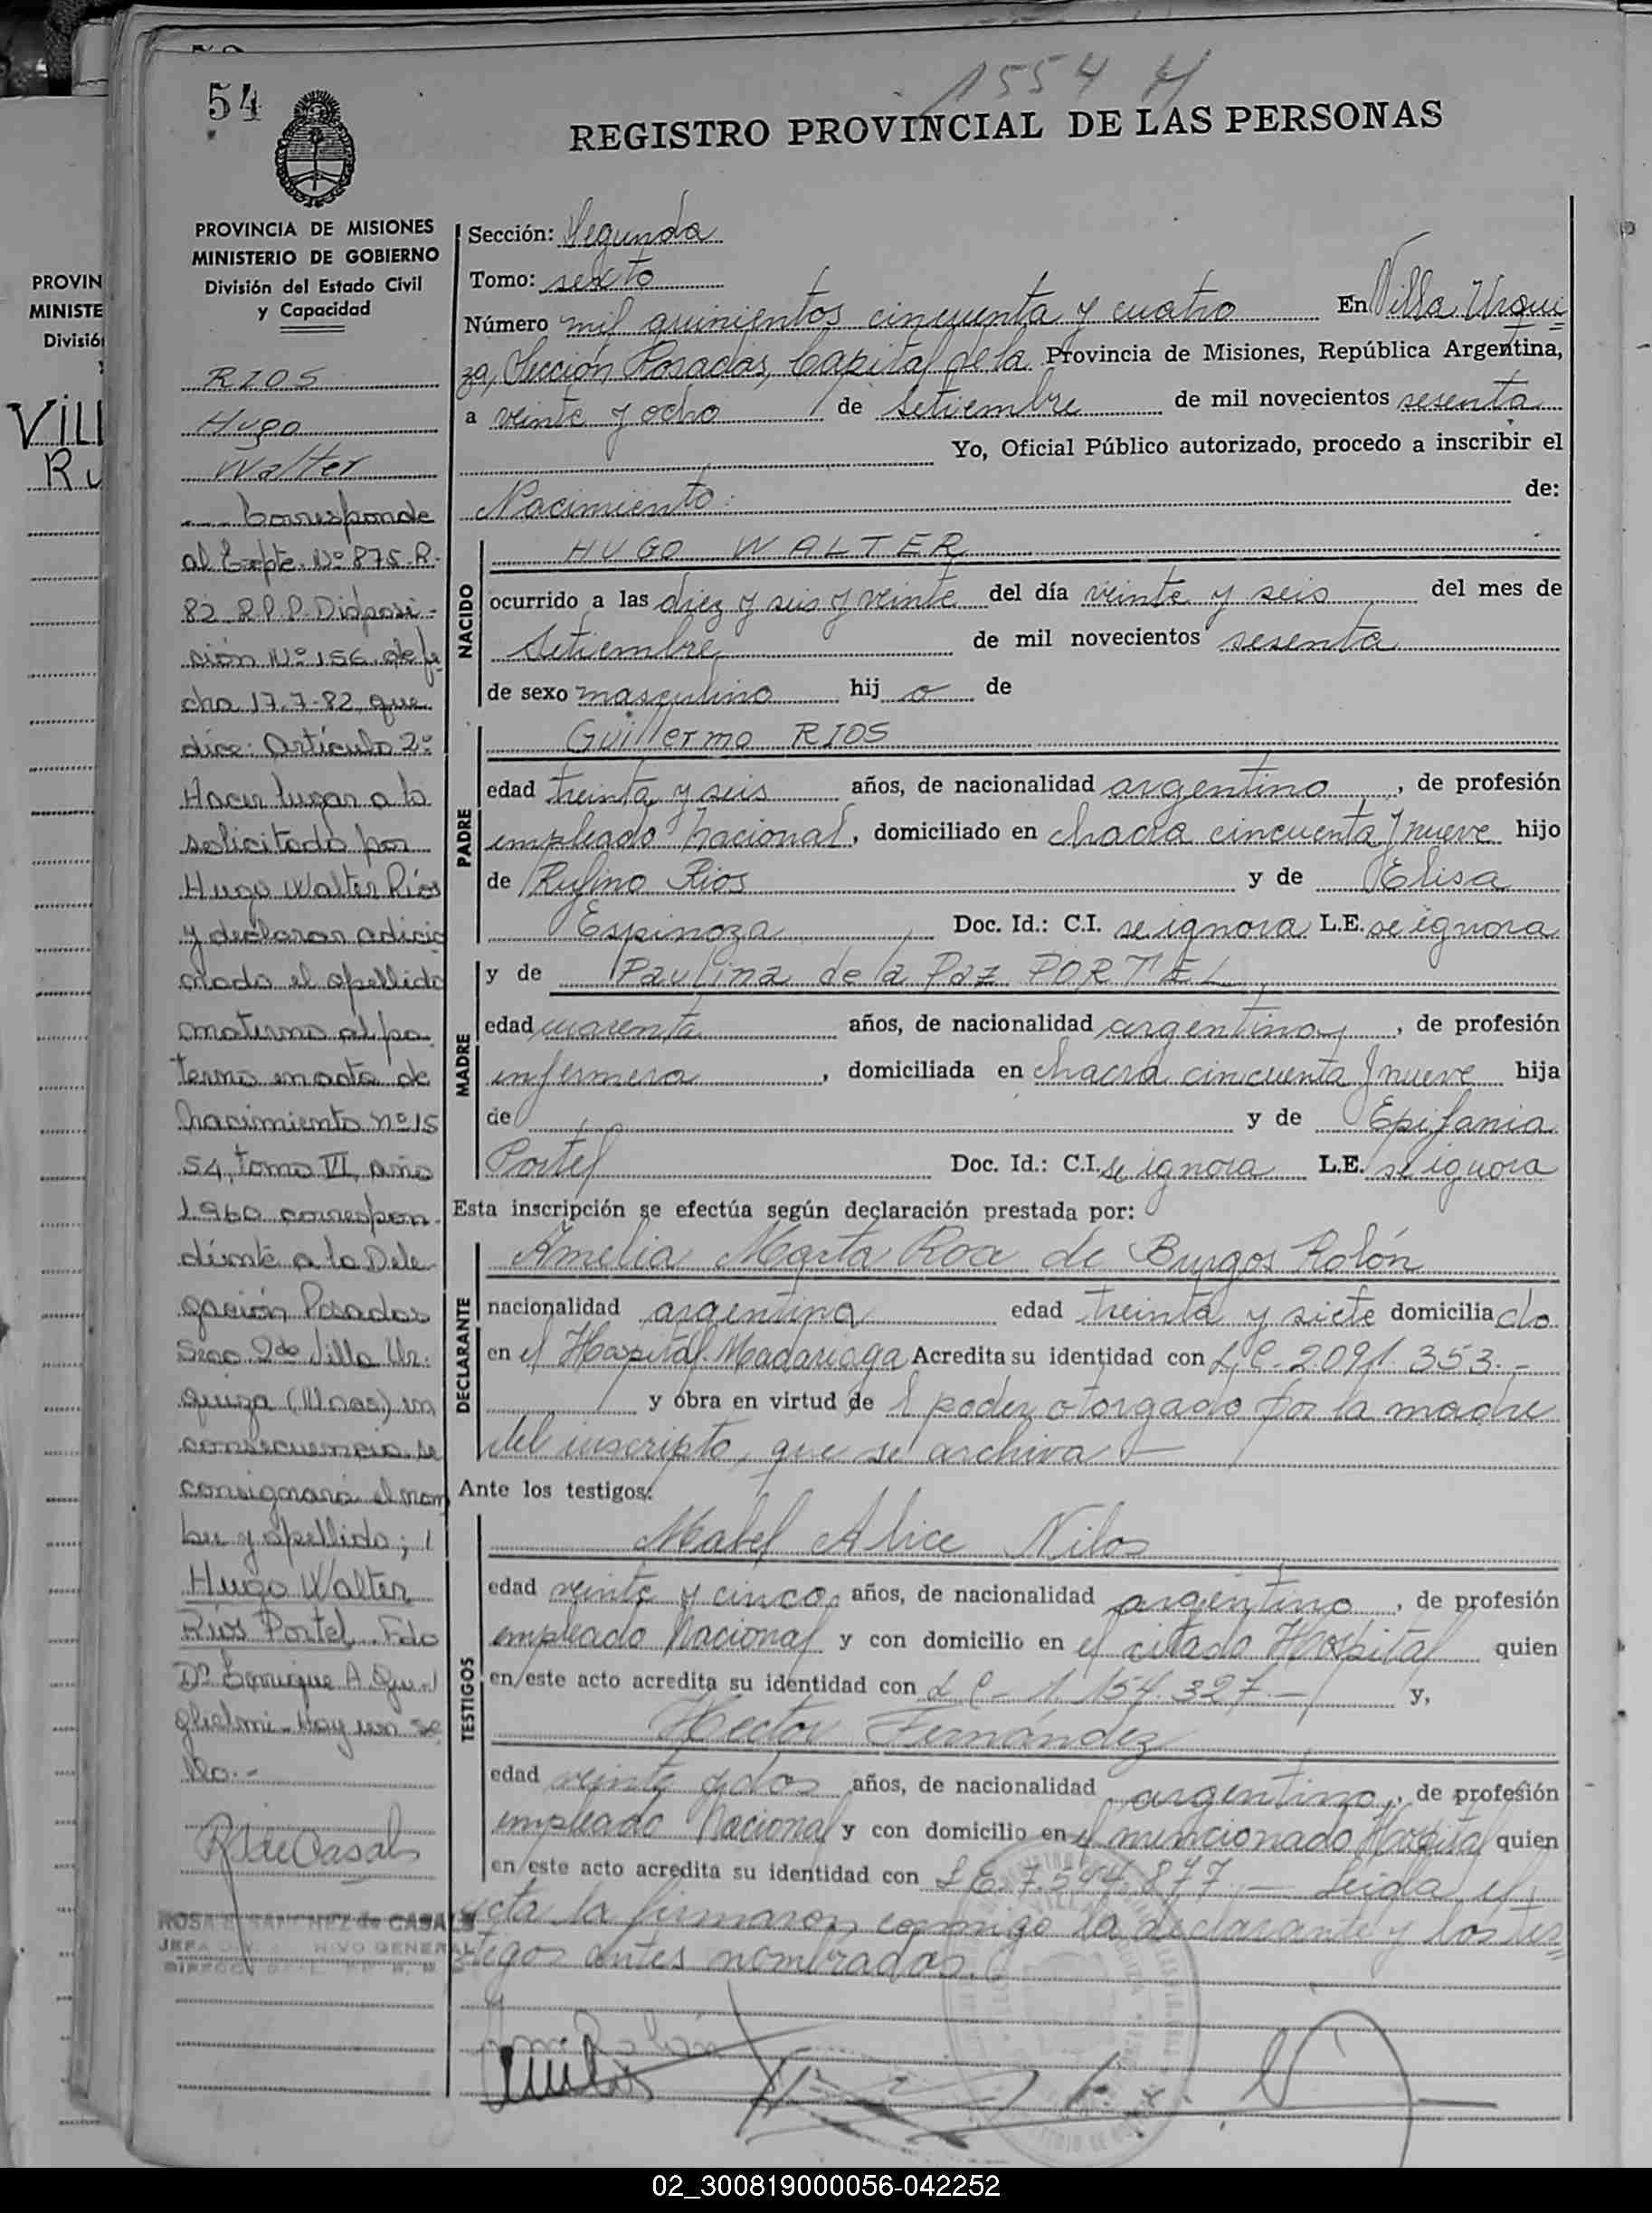 1554 H
54
REGISTRO PROVINCIAL DE LAS PERSONAS
PROVINCIA DE MISIONES
MINISTERIO DE GOBIERNO
División del Estado Civil
y Capacidad
RIOS
Hugo
Walter
Corresponde
al Expte. Nº 875-R-
82 R.P.P. Disposi-
sión Nº 156 de fe
cha 17-7-82 que
dice: Artículo 2º
Hacer lugar a lo
solicitado por
Hugo Walter Ríos
y declarar adicio
nado el apellido
materno al pa
terno en acta de
nacimiento nº 15
54, tomo VI, año
1960 correspon-
diente a la Dele
gación Posadas
Secc. 2da Villa Ur-
quiza (Mnes) en
consecuencia se
consignará el nom
bre y apellido;
Hugo Walter
Ríos Portel. Fdo
Dr. Enrique A. Gu
glielmi - Hay un se
llo.-
ROSA E. SANCHEZ de CASALS
JEFA DIV. ARCHIVO GENERAL
Sección: Segunda
Tomo: sexto
Número mil quinientos cincuenta y cuatro En Villa Urqui=
za, Sección Posadas, Capital de la Provincia de Misiones, República Argentina,
a veinte y ocho de Setiembre de mil novecientos sesenta
Yo, Oficial Público autorizado, procedo a inscribir el
Nacimiento: de:
NACIDO
HUGO WALTER
ocurrido a las diez y seis y veinte del día veinte y seis del mes de
Setiembre de mil novecientos sesenta
de sexo masculino hij o de
PADRE
Guillermo RIOS
edad treinta y seis años, de nacionalidad argentino, de profesión
empleado Nacional, domiciliado en chacra cincuenta y nueve hijo
de Rufino Rios y de Elisa
Espinoza Doc. Id.: C.I. se ignora L.E. se ignora
MADRE
y de Paulina de la Paz PORTEL
edad cuarenta años, de nacionalidad argentina, de profesión
enfermera, domiciliada en chacra cincuenta y nueve hija
de y de Epifania
Portel Doc. Id.: C.I. se ignora L.E. se ignora
Esta inscripción se efectúa según declaración prestada por:
DECLARANTE
Amelia Marta Roa de Burgos Rolón
nacionalidad argentina edad treinta y siete domicilia do
en el Hospital Madariaga Acredita su identidad con L.C. 2.091.353.-
y obra en virtud de l poder otorgado por la madre
del inscripto, que se archiva.-
Ante los testigos:
TESTIGOS
Mabel Alice Nilos
edad veinte y cinco años, de nacionalidad argentino, de profesión
empleado Nacional y con domicilio en el citado Hospital quien
en este acto acredita su identidad con L C - 1.154.327.- y,
Hector Fernández
edad veinte y dos años, de nacionalidad argentino, de profesión
empleado Nacional y con domicilio en el mencionado Hospital quien
en este acto acredita su identidad con L.E. 7.544.877 - Leída el
acta la firmaron conmigo la declarante y los tes=
tigos antes nombrados.
PROVIN
MINISTE
Divisió
VILL
RU
02_300819000056-042252